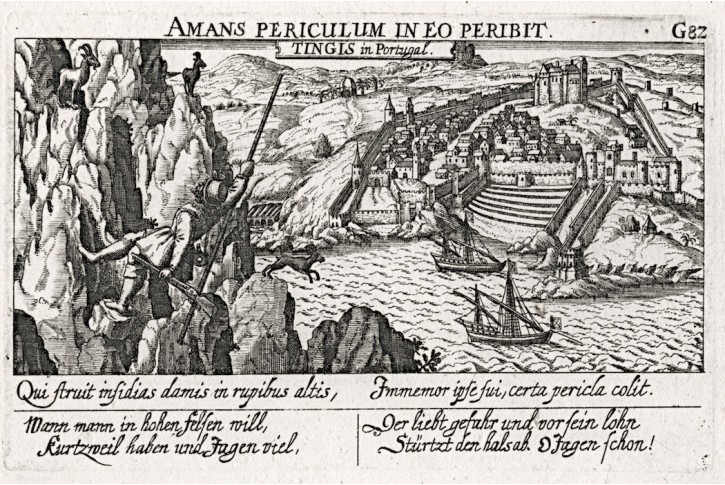 AMANS PERICULUM IN EO PERIBIT.
G82
TINGIS in Portugal.
Qui struit insidias damis in rupibus altis,
Immemor ipse sui, certa pericla colit.
Wann mann in hohen felsen will,
Kurtzweil haben und Jagen viel,
Der liebt gefahr und vor sein lohn
Stürtzt den hals ab. O Jagen schon!